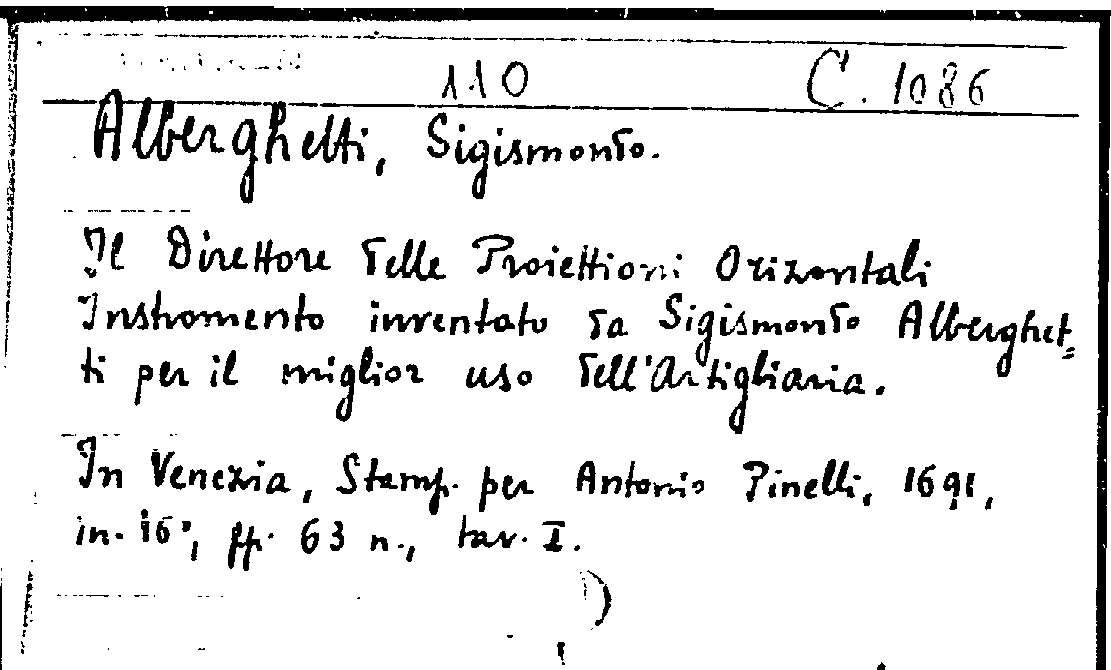 110 C. 1086
Alberghetti, Sigismondo.
Il Direttore delle Proiettioni Orizontali
Instromento inventato da Sigismondo Alberghet=
ti per il miglior uso dell'Artigliaria.
In Venezia, Stamp. per Antonio Pinelli, 1691,
in-16°, ff. 63 n., tav. I.